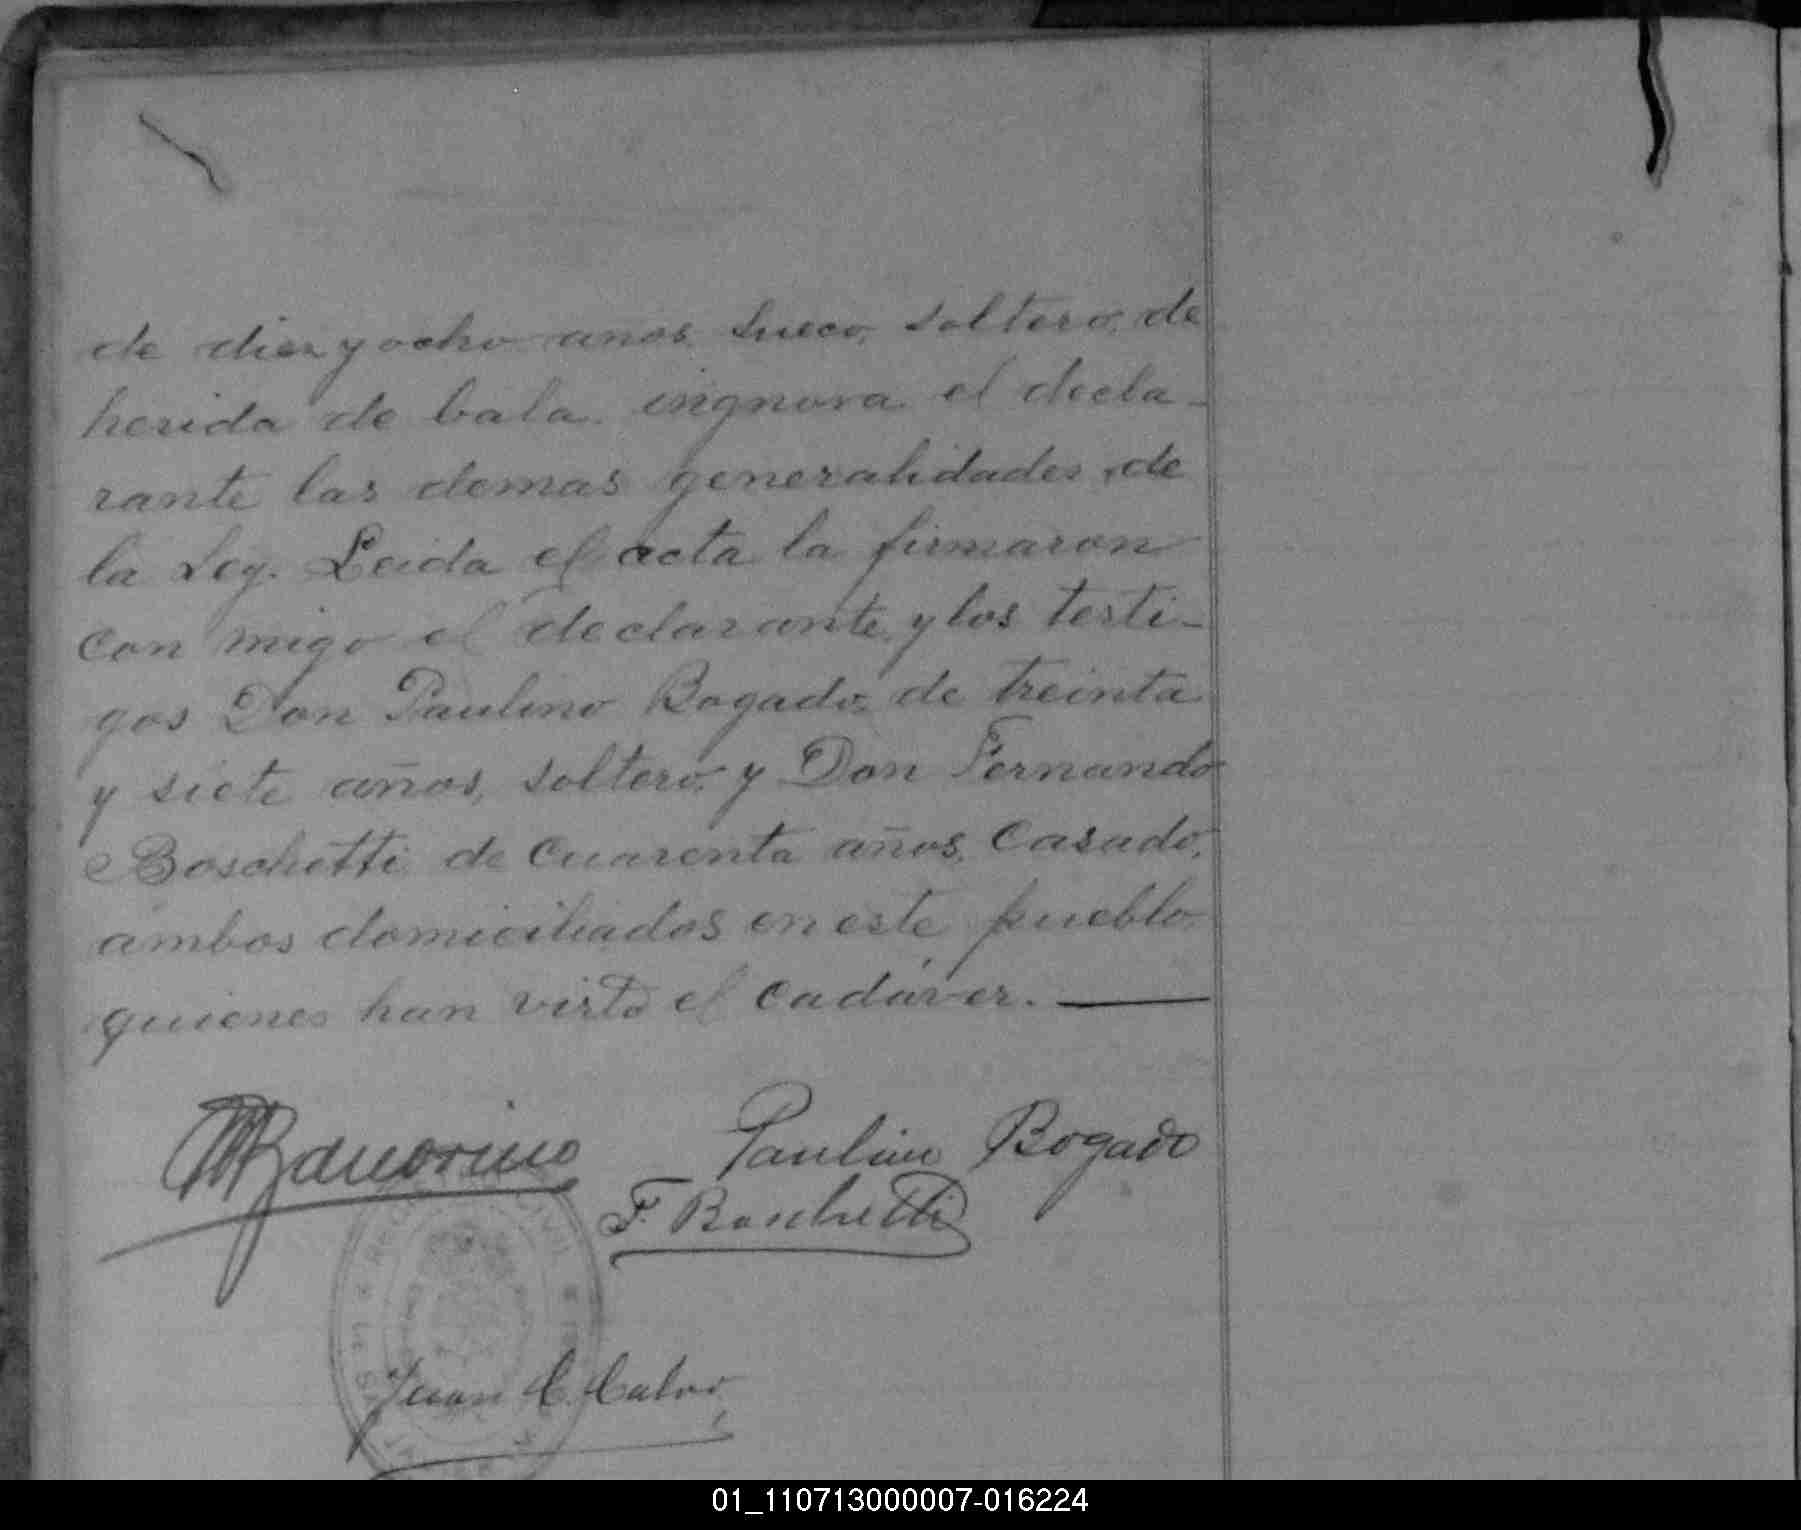 de diez y ocho años, sueco, soltero, de
herida de bala. ingnora el decla-
rante las demas generalidades de
la Ley. Leida el acta la firmaron
con migo el declarante, y los testi-
gos Don Paulino Bogado, de treinta
y siete años, soltero, y Don Fernando
Boschetti de cuarenta años, casado,
ambos domiciliados en este pueblo
quienes han visto el cadáver.
Paulino Bogado
F. Boschetti
Juan C. Calvo
01_110713000007-016224